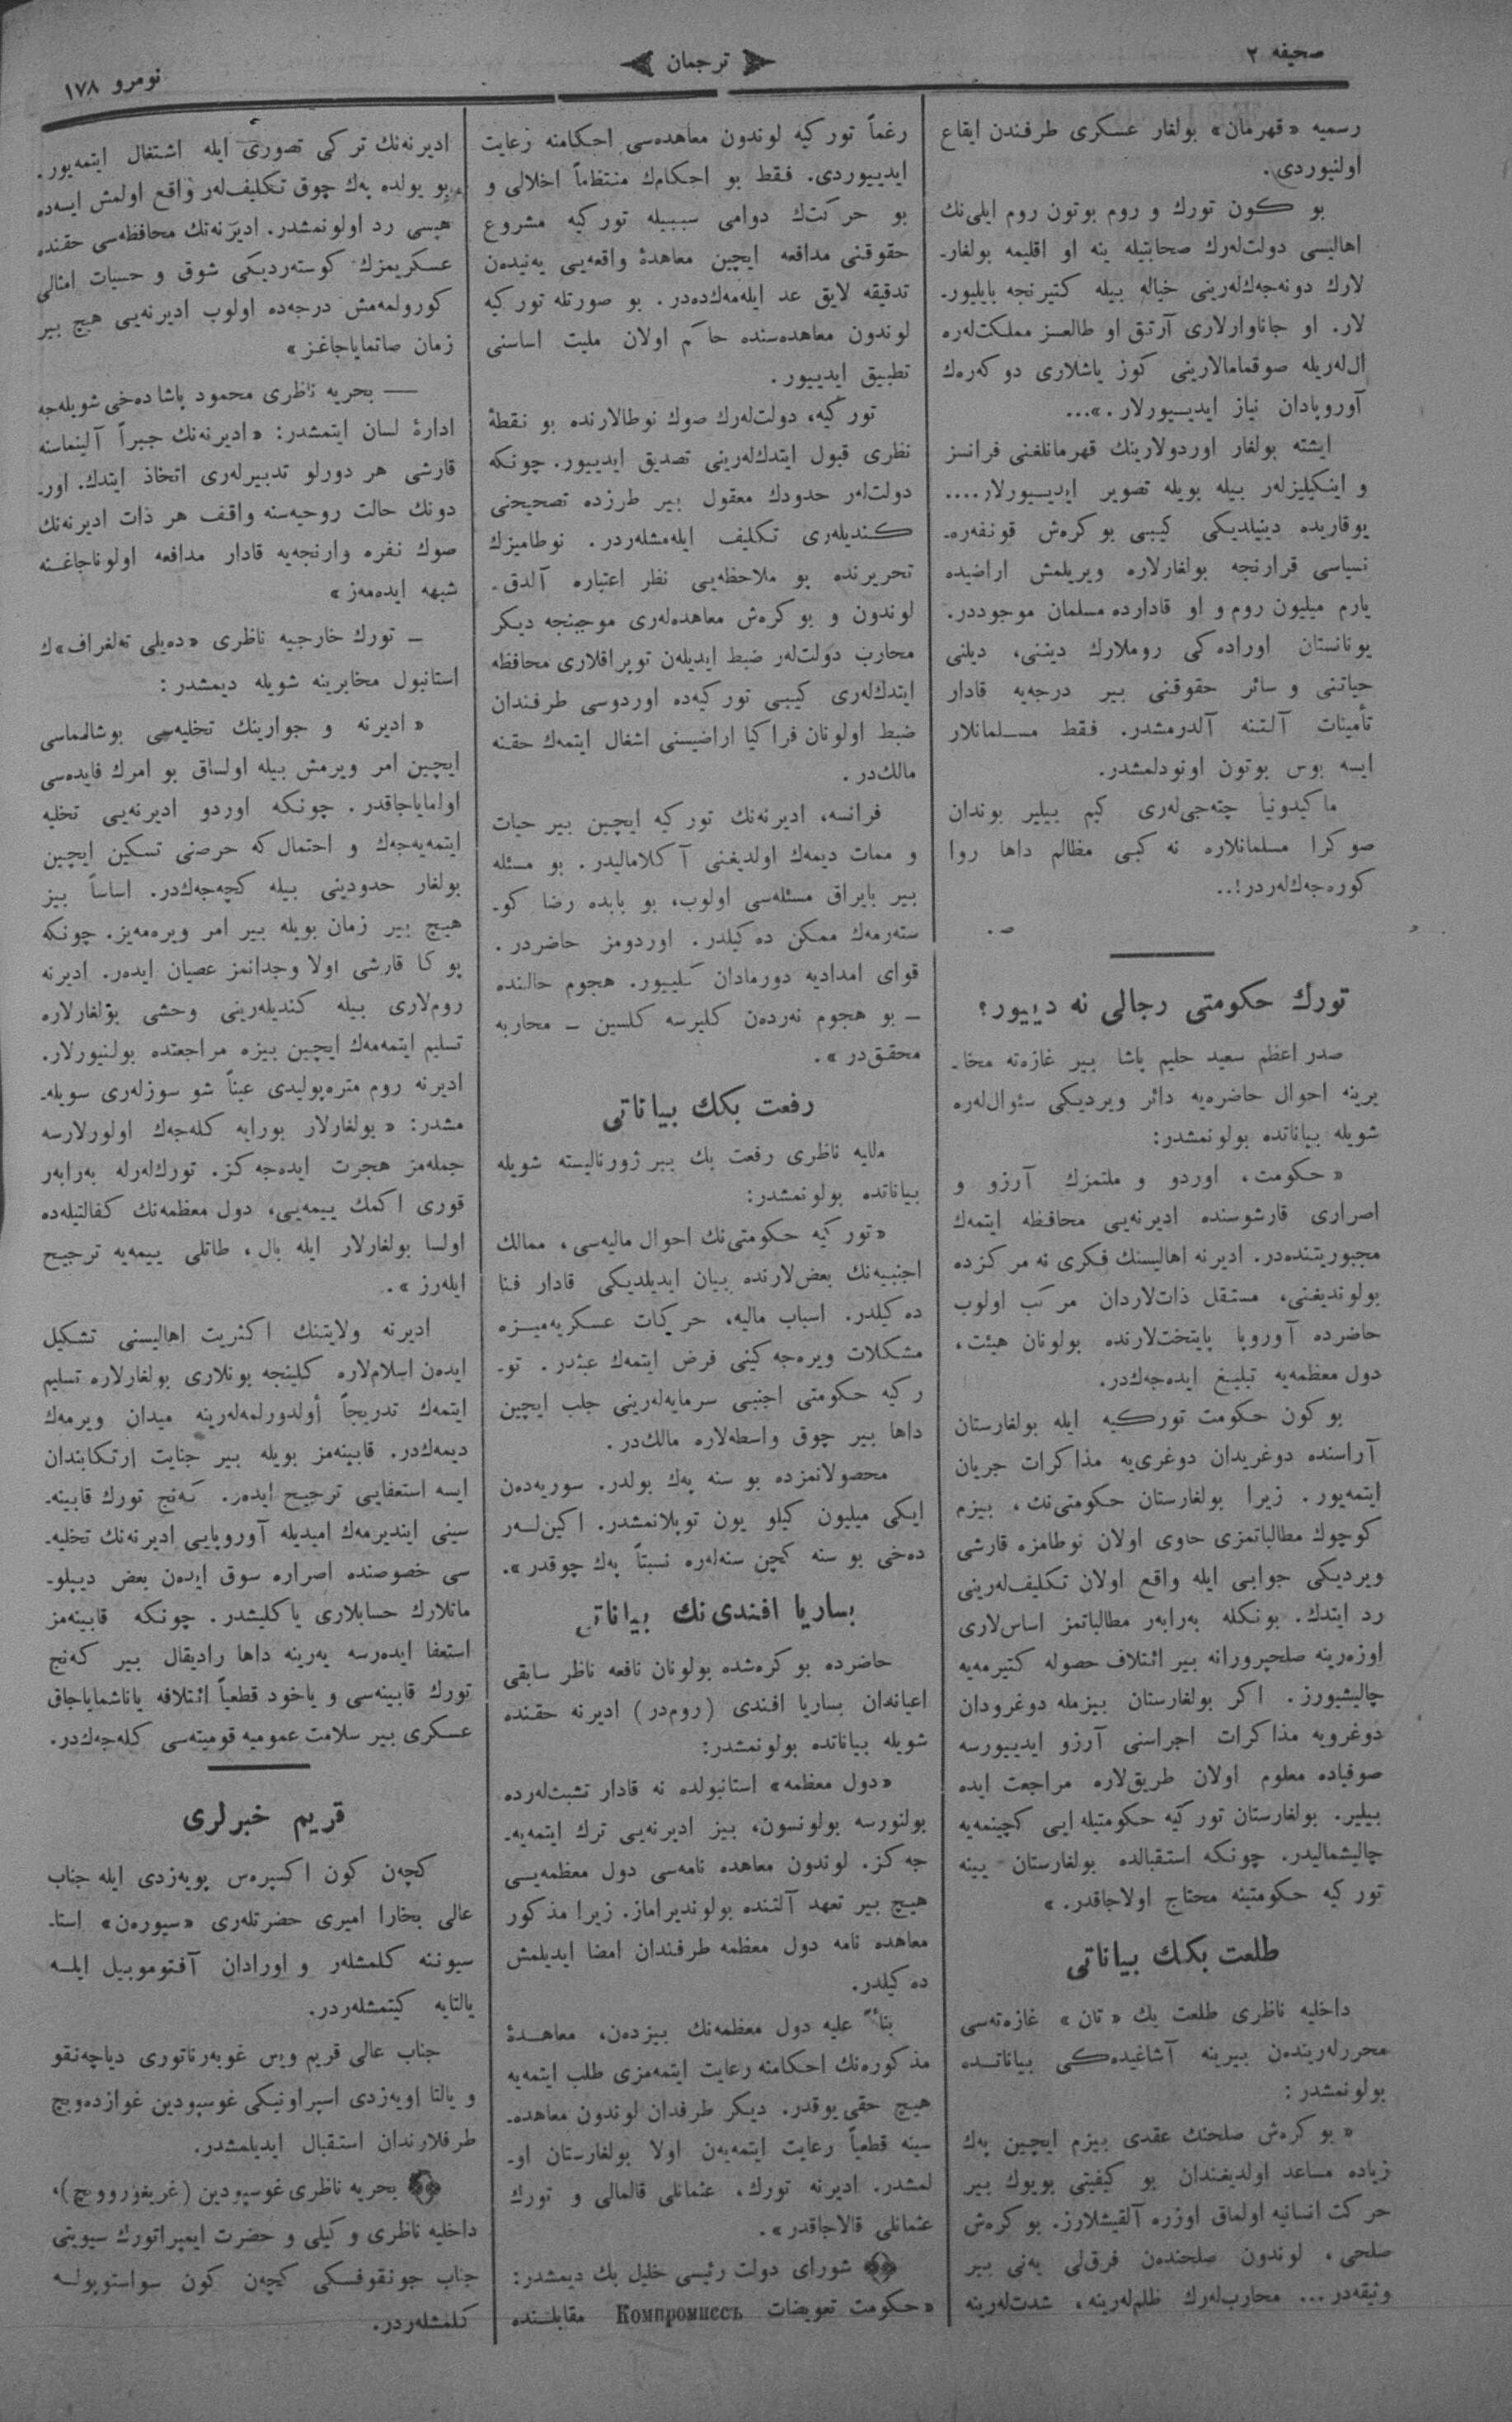 صحيفه ٢
ترجمان
نومرو ١٧٨
رسميه «قهرمان» بولغار عسكرى طرفندن ايقاع
اولنيوردى.
بو كون تورك و روم بوتون روم ايلى‌نك
اهاليسى دولت‌لەرك صحابتيله ينه او اقليمه بولغار-
لارك دونه‌جەك‌لەرينى خياله بيله كتيرنجه بايليور-
لار. او جاناوارلارى آرتق او طالعسز مملكت‌لەره
ال‌لەريله صوقمامالارينى كوز ياشلارى دوكەرەك
آوروپادان نياز ايديـيورلار.»...
ايشته بولغار اوردولارينك قهرمانلغنى فرانسز
و اينكيليزلەر بيله بويله تصوير ايديـيورلار....
يوقاريده دينيلديكى كيبى بوكرەش قونفەرە-
نسياسى قرارنجه بولغارلاره ويريلمش اراضيده
يارم ميليون روم و او قادارده مسلمان موجوددر.
يونانستان اوراده‌كى روملارك دينى، ديلنى
حياتنى و سائر حقوقنى بير درجه‌يه قادار
تأمينات آلتنه آلدرمشدر. فقط مسـلمانلار
ايسه بوس بوتون اونودلمشدر.
ماكيدونيا چتەجى‌لەرى كيم بيلير بوندان
صوكرا مسلمانلاره نه كبى مظالم داها روا
كورەجەك‌لەردر!..
ص.
تورك حكومتى رجالى نه دييور؟
صدر اعظم سعيد حليم پاشا بير غازەته مخا-
برينه احوال حاضرەيه دائر ويرديكى سئوال‌لەره
شويله بياناتده بولونمشدر:
«حكومت، اوردو و ملتمزك آرزو و
اصرارى قارشوسنده اديرنه‌يى محافظه ايتمەك
مجبوريتنده‌در. اديرنه اهاليسنك فكرى نه مركزده
بولونديغنى، مستقل ذات‌لاردان مركب اولوب
حاضرده آوروپا پايتخت‌لارنده بولونان هيئت،
دول معظمه‌يه تبليـغ ايدەجەك‌در.
بو كون حكومت توركـيه ايله بولغارستان
آراسنده دوغريدان دوغرى‌يه مذاكرات جريان
ايتمەيور. زيرا بولغارستان حكومتى‌نك، بيزم
كوچوك مطالباتمزى حاوى اولان نوطامزه قارشى
ويرديكى جوابى ايله واقع اولان تكليف‌لەرينى
رد ايتدك. بونكله بەرابەر مطالباتمز اساس‌لارى
اوزەرينه صلحپرورانه بير ائتلاف حصوله كتيرمەيه
چاليشيورز. اكر بولغارستان بيزمله دوغرودان
دوغرويه مذاكرات اجراسنى آرزو ايدييورسه
صوفياده معلوم اولان طريق‌لاره مراجعت ايده
بيلير. بولغارستان توركيه حكومتيله ايى كچينمەيه
چاليشماليدر. چونكه استقبالده بولغارستان يينه
توركيه حكومتينه محتاج اولاجاقدر.»
طلعت بكك بياناتى
داخليه ناظرى طلعت بك «تان» غازەتەسى
محررلەريندەن بيرينه آشاغيده‌كى بياناتـده
بولونمشدر:
«بوكرەش صلحنك عقدى بيزم ايچين پەك
زياده مساعد اولديغندان بو كيفيتى بويوك بير
حركت انسانيه اولماق اوزره آلقيشلارز. بوكرەش
صلحى، لوندون صلحندەن فرق‌لى يەنى بير
وثيقه‌در... محارب‌لەرك ظلم‌لەرينه، شدت‌لەرينه
رغماً توركيه لوندون معاهده‌سى احكامنه رعايت
ايدييوردى. فقط بو احكام‌ك منتظماً اخلالى و
بو حركت‌ك دوامى سببيله توركيه مشروع
حقوقنى مدافعه ايچين معاهدۀ واقعه‌يى يەنيدەن
تدقيقه لايق عد ايلەمەك‌دەدر. بو صورتله توركيه
لوندون معاهده‌سنده حاكم اولان مليت اساسنى
تطبيق ايدييور.
توركيه، دولت‌لەرك صوك نوطالارنده بو نقطۀ
نظرى قبول ايتدك‌لەرينى تصديق ايدييور. چونكه
دولت‌لەر حدودك معقول بير طرزده تصحيحنى
كـنديلەرى تكليف ايلەمشلەردر. نوطاميزك
تحريرنده بو ملاحظه‌يى نظر اعتباره آلدق.
لوندون و بوكرەش معاهده‌لەرى موجبنجه ديكر
محارب دولت‌لەر ضبط ايديلەن توپراقلارى محافظه
ايتدك‌لەرى كيبى توركيه‌ده اوردوسى طرفندان
ضبط اولونان فراكيا اراضيسنى اشغال ايتمەك حقنه
مالك‌در.
فرانسه، اديرنه‌نك توركيه ايچين بير حيات
و ممات ديمەك اولديغنى آكلاماليدر. بو مسئله
بير بايراق مسئله‌سى اولوب، بو بابده رضا كو-
ستەرمەك ممكن ده‌كيلدر. اوردومز حاضردر.
قواى امداديه دورمادان كلييور. هجوم حالنده
ــ بو هجوم نەردەن كليرسه كلسين ــ محاربه
محقق‌در».
رفعت بكك بياناتى
ماليه ناظرى رفعت بك بير ژورناليسته شويله
بياناتده بولونمشدر:
«توركيه حكومتى‌نك احوال ماليه‌سى، ممالك
اجنبيه‌نك بعض‌لارنده بيان ايديلديكى قادار فنا
ده‌كيلدر. اسباب ماليه، حركات عسكريه‌ميـزه
مشكلات ويرەجەكينى فرض ايتمەك عبثدر. تو-
ركيه حكومتى اجنبى سرمايه‌لەرينى جلب ايچين
داها بير چوق واسطه‌لاره مالك‌در.
محصولاتمزده بو سنه پەك بولدر. سوريه‌دەن
ايكى ميليون كيلو يون توپلانمشدر. اكين‌لـەر
دەخى بو سنه كچن سنه‌لەره نسبتاً پەك چوقدر».
بساريا افندى‌نك بياناتى
حاضرده بوكرەشده بولونان نافعه ناظر سابقى
اعيانه‌دان بساريا افندى (روم‌در) اديرنه حقنده
شويله بياناتده بولونمشدر:
«دول معظمه» استانبولده نه قادار تشبث‌لەرده
بولنورسه بولونسون، بيز اديرنه‌يى ترك ايتمەيه-
جەكز. لوندون معاهده نامه‌سى دول معظمه‌يـى
هيچ بير تعهد آلتنده بولونديراماز. زيرا مذكور
معاهده نامه دول معظمه طرفندان امضا ايديلمش
ده‌كيلدر.
بناءً عليه دول معظمه‌نك بيزدەن، معاهـدۀ
مذكورەنك احكامنه رعايت ايتمەمزى طلب ايتمەيه
هيچ حقى يوقدر. ديكر طرفدان لوندون معاهده-
سينه قطعياً رعايت ايتمەيەن اولا بولغارستان او-
لمشدر. اديرنه تورك، عثمانلى قالمالى و تورك
عثمانلى قالاجاقدر».
شوراى دولت رئيسى خليل بك ديمشدر:
«حكومت تعويضات Компромиссъ مقابلـنده
اديرنه‌نك تركى تصورى ايله اشتغال ايتمەيور.
بو يولده پەك چوق تكليف‌لەر واقع اولمش ايسەده
هپسى رد اولونمشدر. اديرنه‌نك محافظه‌سى حقنده
عسكريمزك كوستەرديكى شوق و حسيات امثالى
كورولمەمش درجه‌ده اولوب اديرنه‌يى هيچ بير
زمان صاتماياجاغـز»
ــ بحريه ناظرى محمود پاشا دەخى شويلەجه
ادارۀ لسان ايتمشدر: «اديرنه‌نك جبراً آلينماسنه
قارشى هر دورلو تدبيرلەرى اتخاذ ايتدك. اور-
دونك حالت روحيه‌سنه واقف هر ذات اديرنه‌نك
صوك نفره وارنجه‌يه قادار مدافعه اولوناجاغـنه
شبهه ايدەمەز»
ــ تورك خارجيه ناظرى «دەيلى تەلغراف»ك
استانبول مخابرينه شويله ديمشدر:
«اديرنه و جوارينك تخليه‌سى بوشالماسى
ايچين امر ويرمش بيله اولساق بو امرك فايده‌سى
اولماياجاقدر. چونكه اوردو اديرنه‌يى تخليه
ايتمەيەجەك و احتمال كه حرصنى تسكين ايچين
بولغار حدودينى بيله كچەجەك‌در. اساساً بيز
هيچ بير زمان بويله بير امر ويرەمەيز. چونكه
بوكا قارشى اولا وجدانمز عصيان ايدەر. اديرنه
روم‌لارى بيله كنديلەرينى وحشى بولغارلاره
تسليم ايتمەمەك ايچين بيزه مراجعتده بولنيورلار.
اديرنه روم متره‌پوليدى عيناً شو سوزلەرى سويله-
مشدر: «بولغارلار بورايه كلەجەك اولورلارسه
جمله‌مز هجرت ايدەجەكز. تورك‌لەرله بەرابەر
قورى اكمك ييمەيى، دول معظمه‌نك كفالتيله‌ده
اولسا بولغارلار ايله بال، طاتلى ييمەيه ترجيح
ايلەرز».
اديرنه ولايتنك اكثريت اهاليسنى تشكيل
ايدەن اسلام‌لاره كلينجه بونلارى بولغارلاره تسليم
ايتمەك تدريجاً أولدورلمەلەرينه ميدان ويرمەك
ديمەك‌در. قابينه‌مز بويله بير جنايت ارتكابندان
ايسه استعفايى ترجيح ايدەر. كەنج تورك قابينه-
سينى اينديرمەك اميديله آوروپايى اديرنه‌نك تخليه-
سى خصوصنده اصراره سوق ايدەن بعض ديپلو-
ماتلارك حسابلارى ياكليشدر. چونكه قابينه‌مز
استعفا ايدەرسه يەرينه داها راديقال بير كەنج
تورك قابينه‌سى و ياخود قطعياً ائتلافه ياناشماياجاق
عسكرى بير سلامت عموميه قوميته‌سى كلەجەك‌در.
قريم خبرلرى
كچەن كون اكسپرەس پويەزدى ايله جناب
عالى بخارا اميرى حضرتلەرى «سيورەن» استا-
سيوننه كلمشلەر و اورادان آفتوموبيل ايلـه
يالتايه كيتمشلەردر.
جناب عالى قريم ويس غوبەرناتورى دياچەنقو
و يالتا اويەزدى اسپراونيكى غوسپودين غوازدەويچ
طرفلارندان استقبال ايديلمشدر.
بحريه ناظرى غوسپودين (غريغوروويچ)،
داخليه ناظرى وكيلى و حضرت ايمپراتورك سيويتى
جناب جونقوفسكى كچەن كون سواستوپولـه
كلمشلەردر.